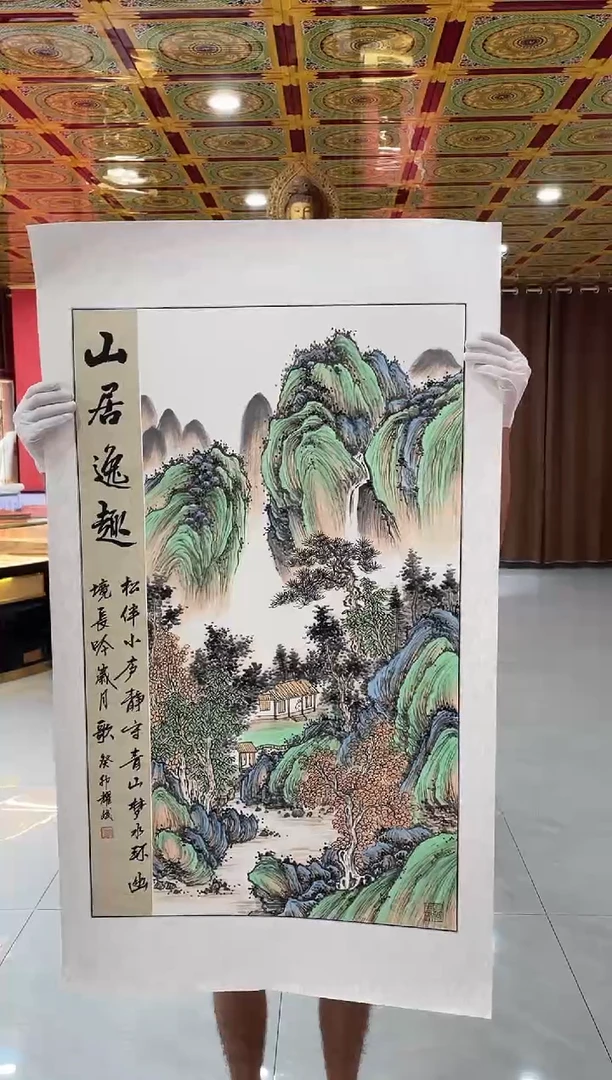 山居逸趣
松伴小庐静守青山梦水环幽
境长吟岁月歌
癸卯耀成